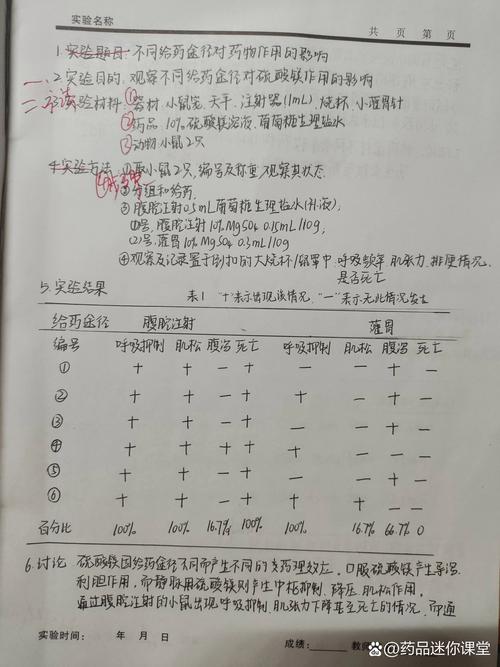 实验名称
共 页 第 页
1.实验题目:不同给药途径对药物作用的影响
一、2.实验目的:观察不同给药途径对硫酸镁作用的影响
二、 验材料:①器材:小鼠笼、天平、注射器(1mL)、烧杯、小灌胃针
②药品:10%硫酸镁溶液、葡萄糖生理盐水
③动物:小鼠2只
4.实验方法:①取小鼠2只,编号及称重,观察其状态.
②分组和给药
③腹腔注射0.5mL葡萄糖生理盐水(补液),
①号,腹腔注射10% MgSO4 0.15mL/10g,
②号,灌胃10% MgSO4 0.3mL/10g
④观察及记录置于倒扣的大烧杯/鼠罩中,呼吸频率 肌张力、排便情况.
是否死亡
5.实验结果
表1 "+"表示出现该情况,"一"表示无此情况发生
给药途径 腹腔注射 灌胃
编号 呼吸抑制 肌松 腹泻 死亡 呼吸抑制 肌松 腹泻 死亡
① + + − + − − + −
② + + − + + − + −
③ + + − + − − + −
④ + + + + + − + −
⑤ + + − + − − + −
⑥ + + − + + + − −
百分比 100% 100% 16.7% 100% 100% 16.7% 66.7% 0
6.讨论 硫酸镁因给药途径不同而产生不同的药理效应,口服硫酸镁产生导泻.
利胆作用,而静脉用硫酸镁则产生中枢抑制、降压、肌松作用,
通过腹腔注射的小鼠出现呼吸抑制、肌张力下降甚至死亡的情况,而通
实验时间: 年 月 日
成绩: 教师
@药品迷你课堂